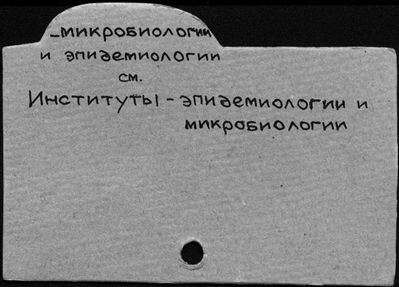 -микробиологии
и эпидемиологии
см.
Институты - эпидемиологии и
микробиологии